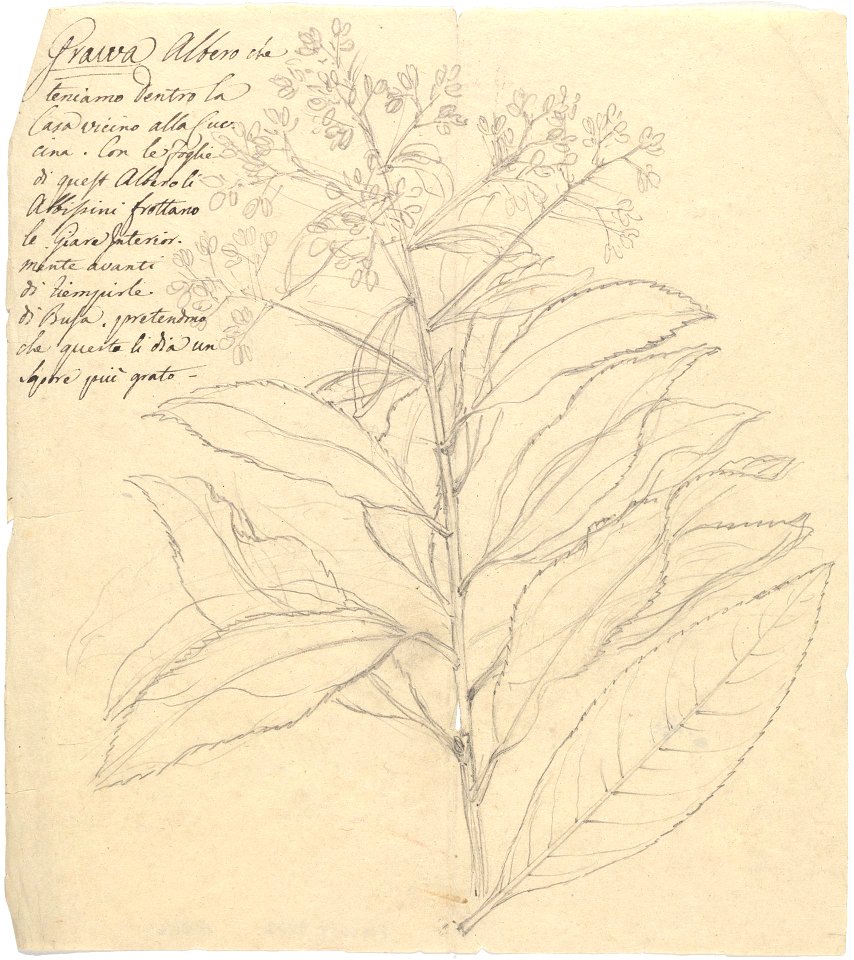 Grawa Albero che
teniamo dentro la
Casa vicino alla Cuc-
cina. Con le foglie
di quest Albero li
Abissini frottano
le Giare Interior-
mente avanti
di riempirle
di Busa. pretendono
che questo li dia un
sapore più grato -